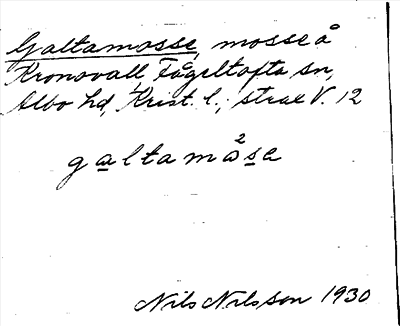 Galtamosse, mosse å
Kronovall, Fågeltofta sn,
Albo hd, Krist. l.; strax V. 12
galtamåse
Nils Nilsson 1930